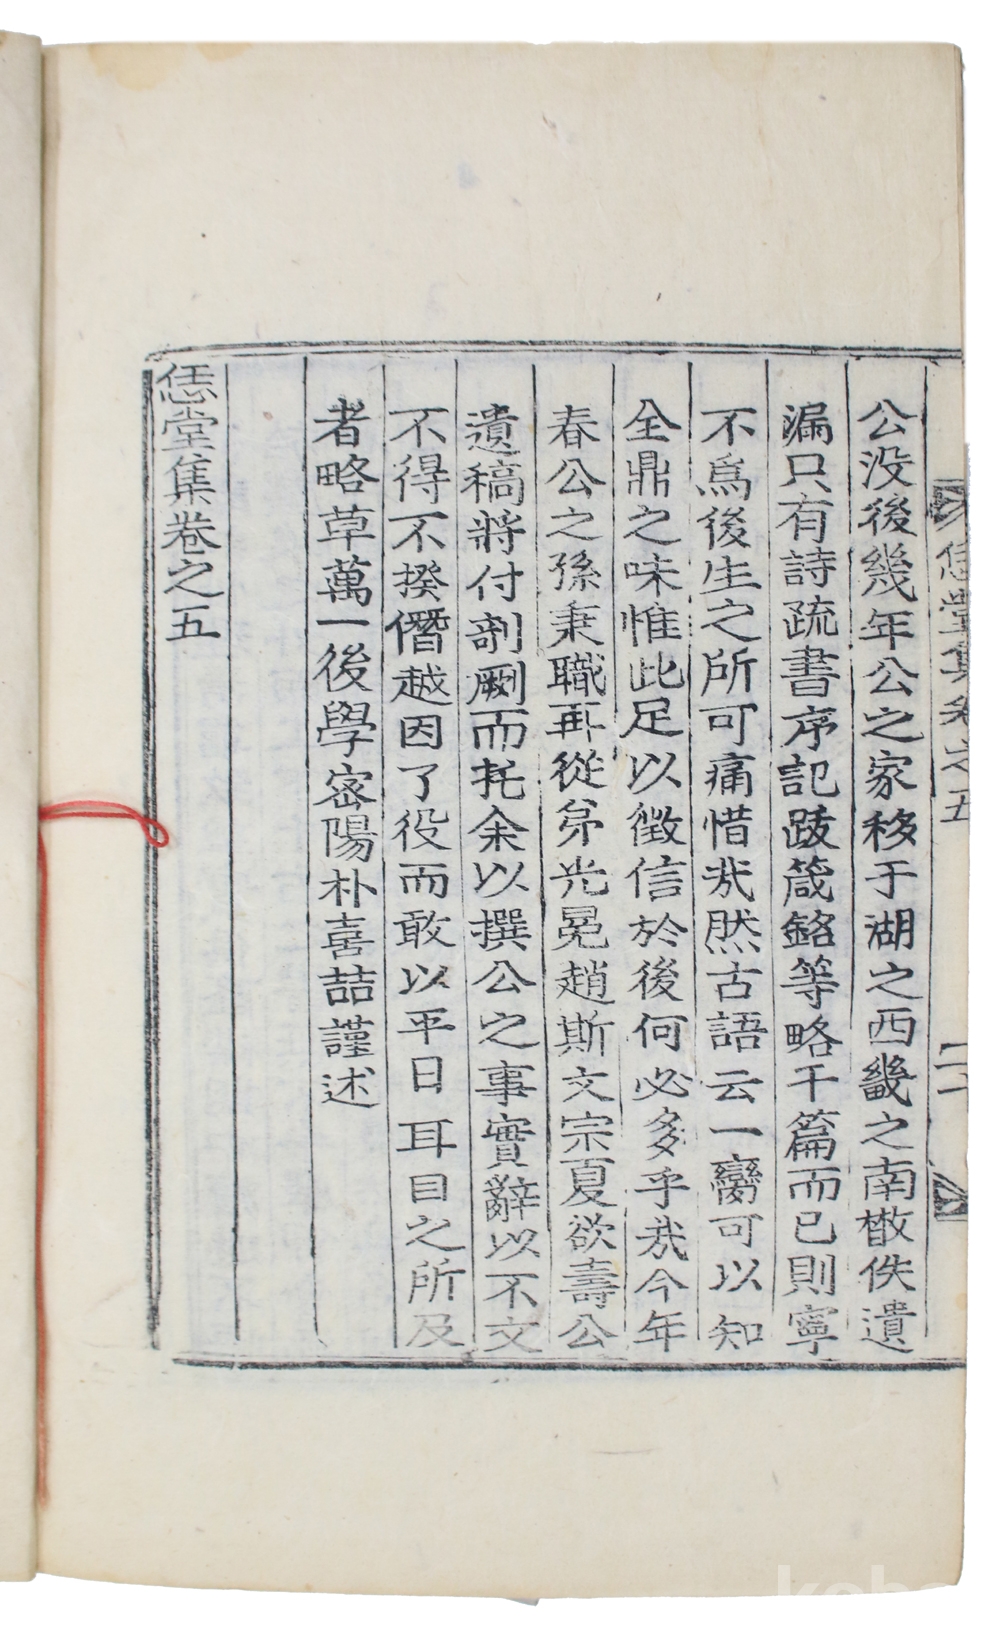 恁堂集卷之五
二十
公没後幾年公之家移于湖之西畿之南散佚遺
漏只有詩疏書序記跋箴銘等略干篇而已則寧
不爲後生之所可痛惜㢤然古語云一臠可以知
全鼎之味惟此足以徵信於後何必多乎㢤今年
春公之孫秉職再從弟光冕趙斯文宗夏欲壽公
遺稿將付剞劂而托余以撰公之事實辭以不文
不得不揆僭越因了役而敢以平日耳目之所及
者略草萬一後學密陽朴喜喆謹述
恁堂集卷之五